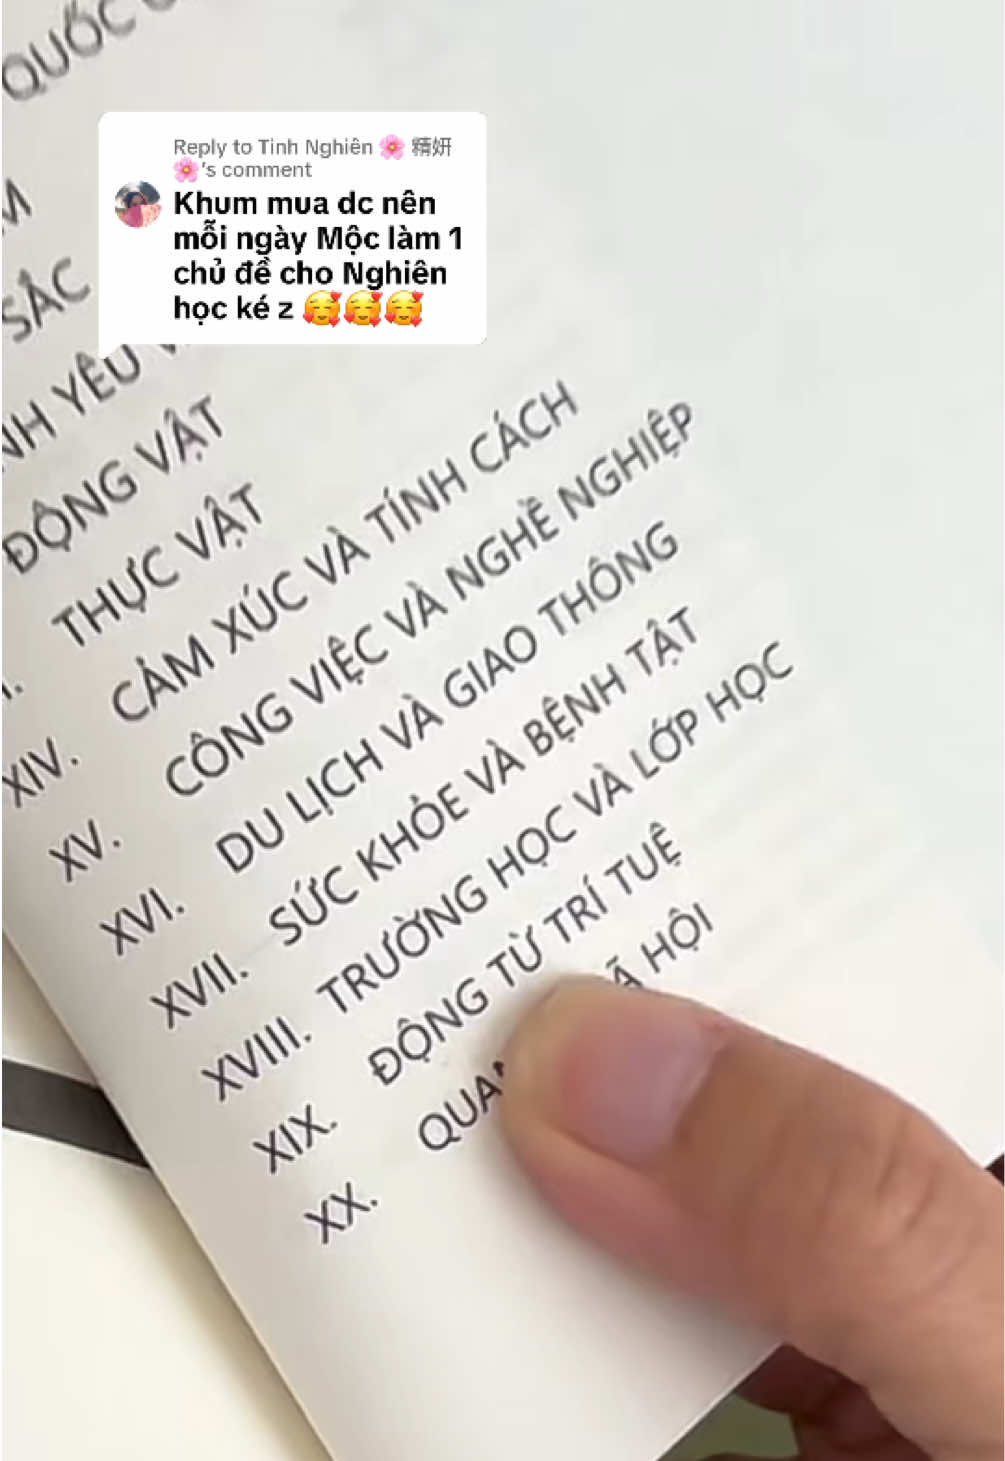 QUỐC
Reply to Tinh Nghiên 🌸 精妍
🌸's comment
Khum mua dc nên
mỗi ngày Mộc làm 1
chủ đề cho Nghiên
học ké z 🥰🥰🥰
SẮC
YÊU
ĐỘNG VẬT
THỰC VẬT
CẢM XÚC VÀ TÍNH CÁCH
XIV. CÔNG VIỆC VÀ NGHỀ NGHIỆP
XV. DU LỊCH VÀ GIAO THÔNG
XVI. SỨC KHỎE VÀ BỆNH TẬT
XVII. TRƯỜNG HỌC VÀ LỚP HỌC
XVIII. ĐỘNG TỪ TRÍ TUỆ
XIX. HỘI
XX.